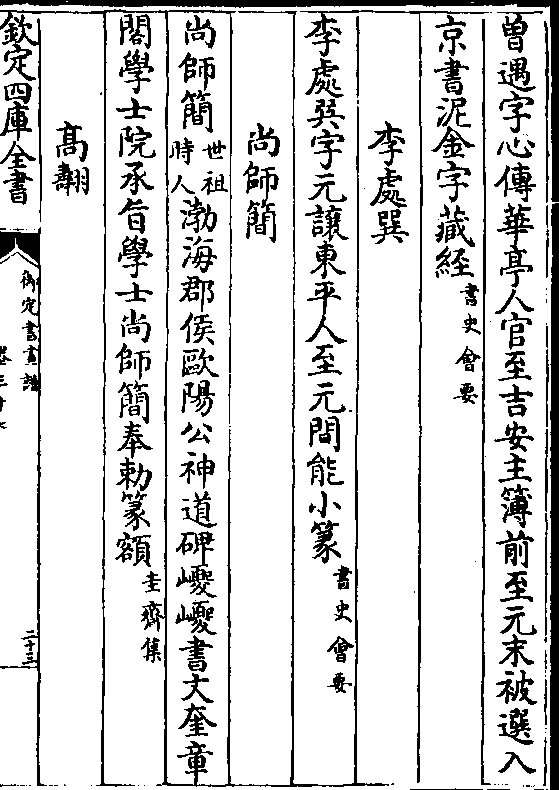 曾遇字心傳華亭人官至吉安主簿前至元末被選入
京書泥金字藏經書史會要
李處巽
李處巽字元讓東平人至元間能小篆書史會要
尚師簡
尚師簡世祖時人渤海郡侯歐陽公神道碑巙巙書丈奎章
閣學士院承旨學士尚師簡奉勅篆額圭齋集
高翿
欽定四庫全書
御定書畫譜
二十三